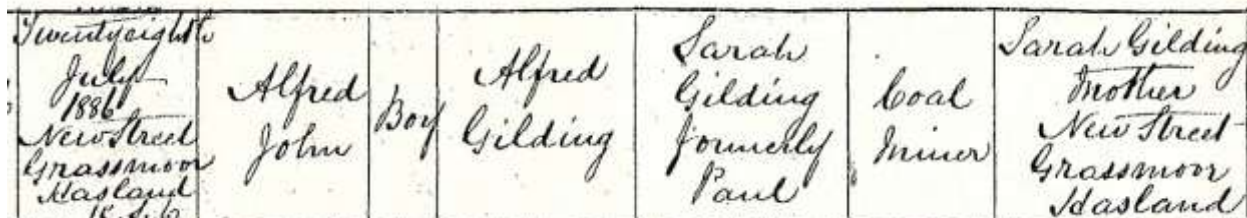 Twentyeighth
July
1886
New Street
Grassmoor
Hasland
Alfred
John
Boy
Alfred
Gilding
Sarah
Gilding
formerly
Paul
Coal
Miner
Sarah Gilding
Mother
New Street
Grassmoor
Hasland